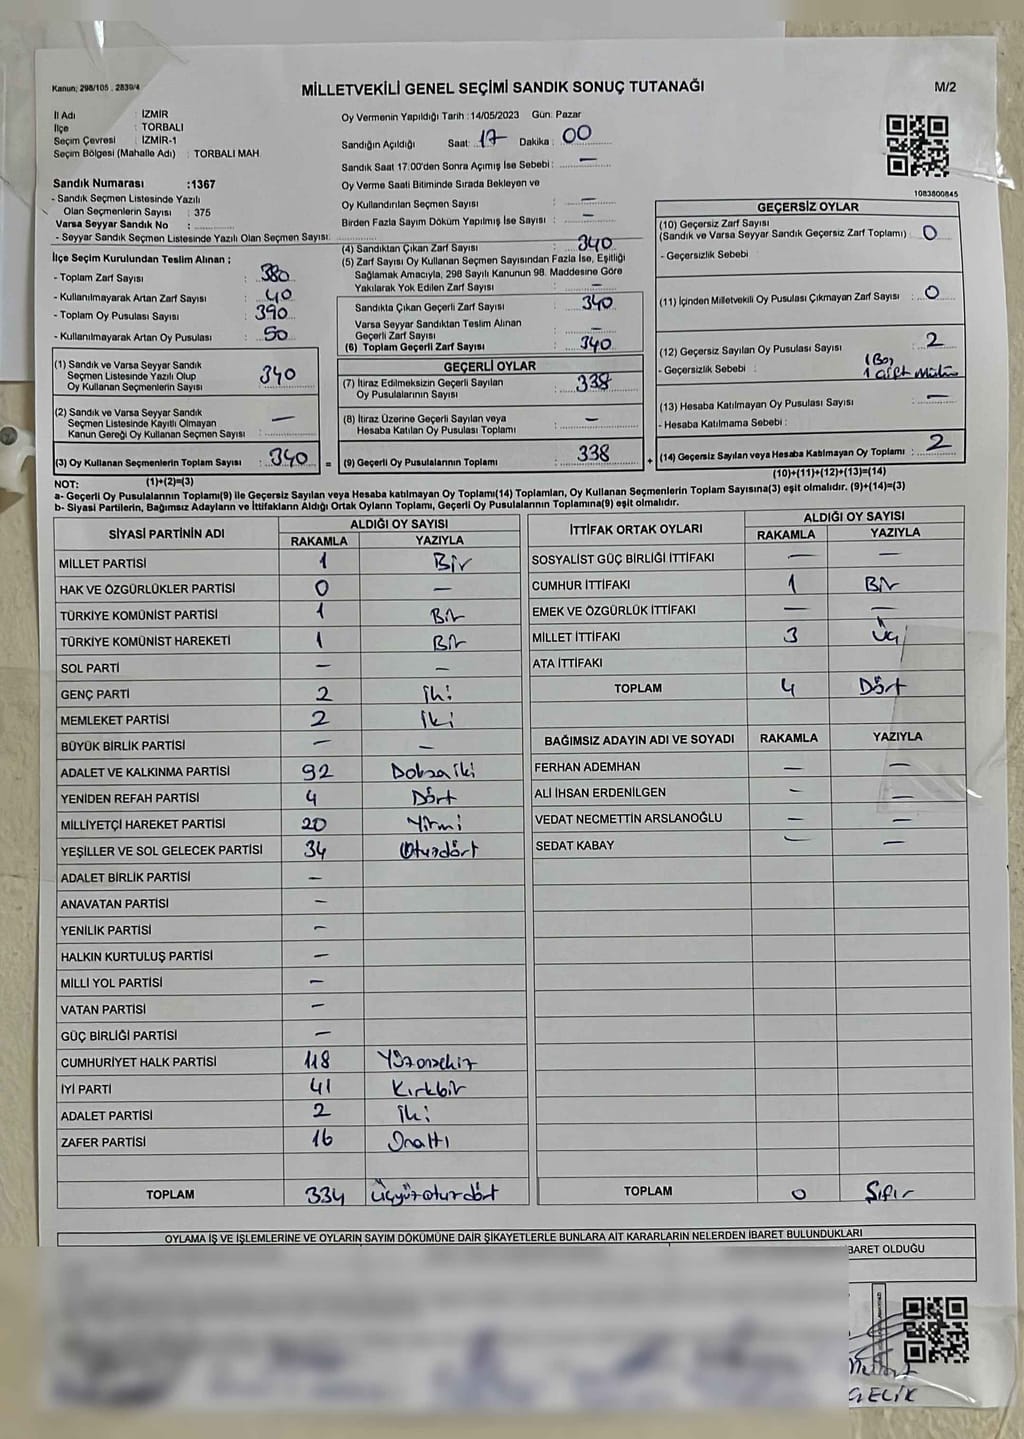 Kanun; 298/105 , 2839/4
MİLLETVEKİLİ GENEL SEÇİMİ SANDIK SONUÇ TUTANAĞI
M/2
İl Adı : İZMİR
İlçe : TORBALI
Seçim Çevresi : İZMİR-1
Seçim Bölgesi (Mahalle Adı) : TORBALI MAH.
Sandık Numarası :1367
- Sandık Seçmen Listesinde Yazılı
Olan Seçmenlerin Sayısı : 375
Varsa Seyyar Sandık No :
- Seyyar Sandık Seçmen Listesinde Yazılı Olan Seçmen Sayısı:
İlçe Seçim Kurulundan Teslim Alınan ;
- Toplam Zarf Sayısı : 380
- Kullanılmayarak Artan Zarf Sayısı : 40
- Toplam Oy Pusulası Sayısı : 390
- Kullanılmayarak Artan Oy Pusulası : 50
(1) Sandık ve Varsa Seyyar Sandık
Seçmen Listesinde Yazılı Olup
Oy Kullanan Seçmenlerin Sayısı : 340
(2) Sandık ve Varsa Seyyar Sandık
Seçmen Listesinde Kayıtlı Olmayan
Kanun Gereği Oy Kullanan Seçmen Sayısı : —
(3) Oy Kullanan Seçmenlerin Toplam Sayısı : 340
(1)+(2)=(3)
Oy Vermenin Yapıldığı Tarih : 14/05/2023 Gün: Pazar
Sandığın Açıldığı Saat: 17 Dakika : 00
Sandık Saat 17:00'den Sonra Açımış İse Sebebi : —
Oy Verme Saati Bitiminde Sırada Bekleyen ve
Oy Kullandırılan Seçmen Sayısı : —
Birden Fazla Sayım Döküm Yapılmış İse Sayısı : —
(4) Sandıktan Çıkan Zarf Sayısı : 340
(5) Zarf Sayısı Oy Kullanan Seçmen Sayısından Fazla İse, Eşitliği
Sağlamak Amacıyla, 298 Sayılı Kanunun 98. Maddesine Göre
Yakılarak Yok Edilen Zarf Sayısı : —
Sandıkta Çıkan Geçerli Zarf Sayısı : 340
Varsa Seyyar Sandıktan Teslim Alınan
Geçerli Zarf Sayısı : —
(6) Toplam Geçerli Zarf Sayısı : 340
GEÇERLİ OYLAR
(7) İtiraz Edilmeksizin Geçerli Sayılan
Oy Pusulalarının Sayısı : 338
(8) İtiraz Üzerine Geçerli Sayılan veya
Hesaba Katılan Oy Pusulası Toplamı : —
= (9) Geçerli Oy Pusulalarının Toplamı : 338
1083800845
GEÇERSİZ OYLAR
(10) Geçersiz Zarf Sayısı
(Sandık ve Varsa Seyyar Sandık Geçersiz Zarf Toplamı) : 0
- Geçersizlik Sebebi :
(11) İçinden Milletvekili Oy Pusulası Çıkmayan Zarf Sayısı : 0
(12) Geçersiz Sayılan Oy Pusulası Sayısı : 2
- Geçersizlik Sebebi : 1 Boş
1 çift Mühür
(13) Hesaba Katılmayan Oy Pusulası Sayısı : —
- Hesaba Katılmama Sebebi :
+ (14) Geçersiz Sayılan veya Hesaba Katılmayan Oy Toplamı : 2
(10)+(11)+(12)+(13)=(14)
NOT:
a- Geçerli Oy Pusulalarının Toplamı(9) ile Geçersiz Sayılan veya Hesaba katılmayan Oy Toplamı(14) Toplamları, Oy Kullanan Seçmenlerin Toplam Sayısına(3) eşit olmalıdır. (9)+(14)=(3)
b- Siyasi Partilerin, Bağımsız Adayların ve İttifakların Aldığı Ortak Oyların Toplamı, Geçerli Oy Pusulalarının Toplamına(9) eşit olmalıdır.
SİYASİ PARTİNİN ADI ALDIĞI OY SAYISI
RAKAMLA YAZIYLA
MİLLET PARTİSİ 1 Bir
HAK VE ÖZGÜRLÜKLER PARTİSİ 0 —
TÜRKİYE KOMÜNİST PARTİSİ 1 Bir
TÜRKİYE KOMÜNİST HAREKETİ 1 Bir
SOL PARTİ — —
GENÇ PARTİ 2 iki
MEMLEKET PARTİSİ 2 iki
BÜYÜK BİRLİK PARTİSİ — —
ADALET VE KALKINMA PARTİSİ 92 Doksaiki
YENİDEN REFAH PARTİSİ 4 Dört
MİLLİYETÇİ HAREKET PARTİSİ 20 Yirmi
YEŞİLLER VE SOL GELECEK PARTİSİ 34 Otuzdört
ADALET BİRLİK PARTİSİ —
ANAVATAN PARTİSİ —
YENİLİK PARTİSİ —
HALKIN KURTULUŞ PARTİSİ —
MİLLİ YOL PARTİSİ —
VATAN PARTİSİ —
GÜÇ BİRLİĞİ PARTİSİ —
CUMHURİYET HALK PARTİSİ 118 Yüzonsekiz
İYİ PARTİ 41 Kırkbir
ADALET PARTİSİ 2 iki
ZAFER PARTİSİ 16 Onaltı
TOPLAM 334 üçyüzoturdört
İTTİFAK ORTAK OYLARI ALDIĞI OY SAYISI
RAKAMLA YAZIYLA
SOSYALİST GÜÇ BİRLİĞİ İTTİFAKI — —
CUMHUR İTTİFAKI 1 Bir
EMEK VE ÖZGÜRLÜK İTTİFAKI — —
MİLLET İTTİFAKI 3 Üç
ATA İTTİFAKI
TOPLAM 4 Dört
BAĞIMSIZ ADAYIN ADI VE SOYADI RAKAMLA YAZIYLA
FERHAN ADEMHAN — —
ALİ İHSAN ERDENİLGEN — —
VEDAT NECMETTİN ARSLANOĞLU — —
SEDAT KABAY — —
TOPLAM 0 Sıfır
OYLAMA İŞ VE İŞLEMLERİNE VE OYLARIN SAYIM DÖKÜMÜNE DAİR ŞİKAYETLERLE BUNLARA AİT KARARLARIN NELERDEN İBARET BULUNDUKLARI
BARET OLDUĞU
ÇELİK